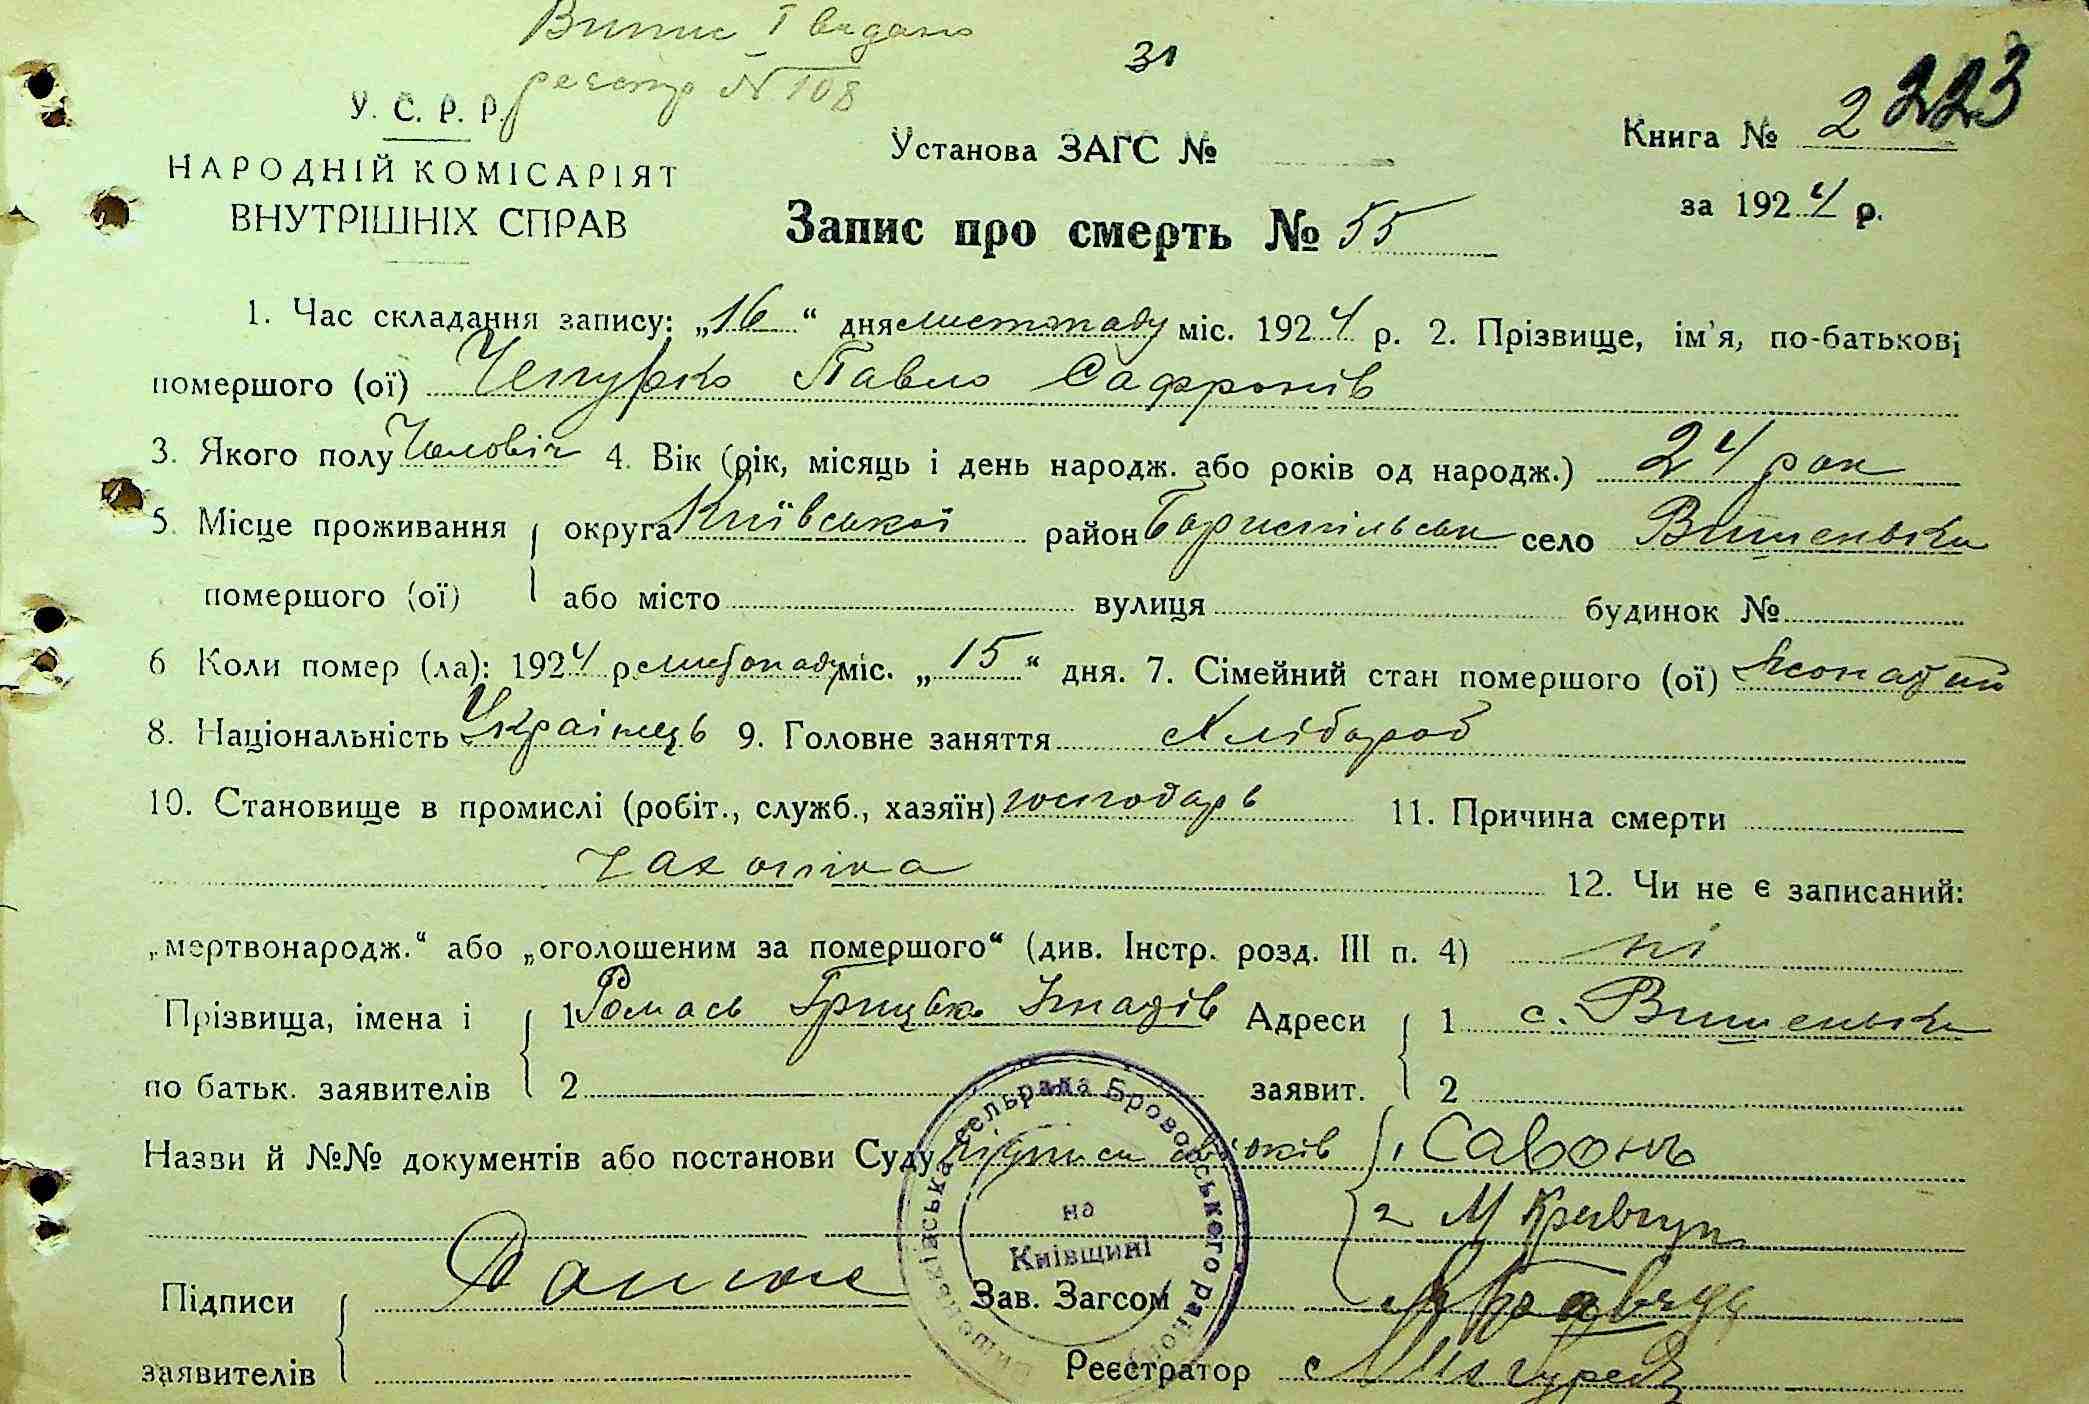 Випис I видано
реєстр № 108
31
223
У. С. Р. Р.
НАРОДНІЙ КОМІСАРІЯТ
ВНУТРІШНІХ СПРАВ
Установа ЗАГС №
Книга № 2
за 1924 р.
Запис про смерть № 55
1. Час складання запису: „16“ дня листопаду міс. 1924 р. 2. Прізвище, ім'я, по-батькові
помершого (ої) Чепурко Павло Сафронів
3. Якого полу Чоловіч 4. Вік (рік, місяць і день народж. або років од народж.) 24 рок
5. Місце проживання округа Київської район Бориспільськ село Вишеньки
помершого (ої) або місто вулиця будинок №
6 Коли помер (ла): 1924 р. листопаду міс. „15“ дня. 7. Сімейний стан помершого (ої) Жонатий
8. Національність Українець 9. Головне заняття Хлібороб
10. Становище в промислі (робіт., служб., хазяїн) господарь 11. Причина смерти
чахотка 12. Чи не є записаний:
„мертвонародж.“ або „оголошеним за помершого“ (див. Інстр. розд. III п. 4) ні
Прізвища, імена і 1 Ромась Грицько Ігнатів Адреси 1 с. Вишеньки
по батьк. заявителів 2 заявит. 2
Назви й №№ документів або постанови Суду підписи свідків 1 Савонъ
2 М Кравчун
Підписи Зав. Загсом
заявителів Реєстратор
сельрада Броварського район
на
Київщині